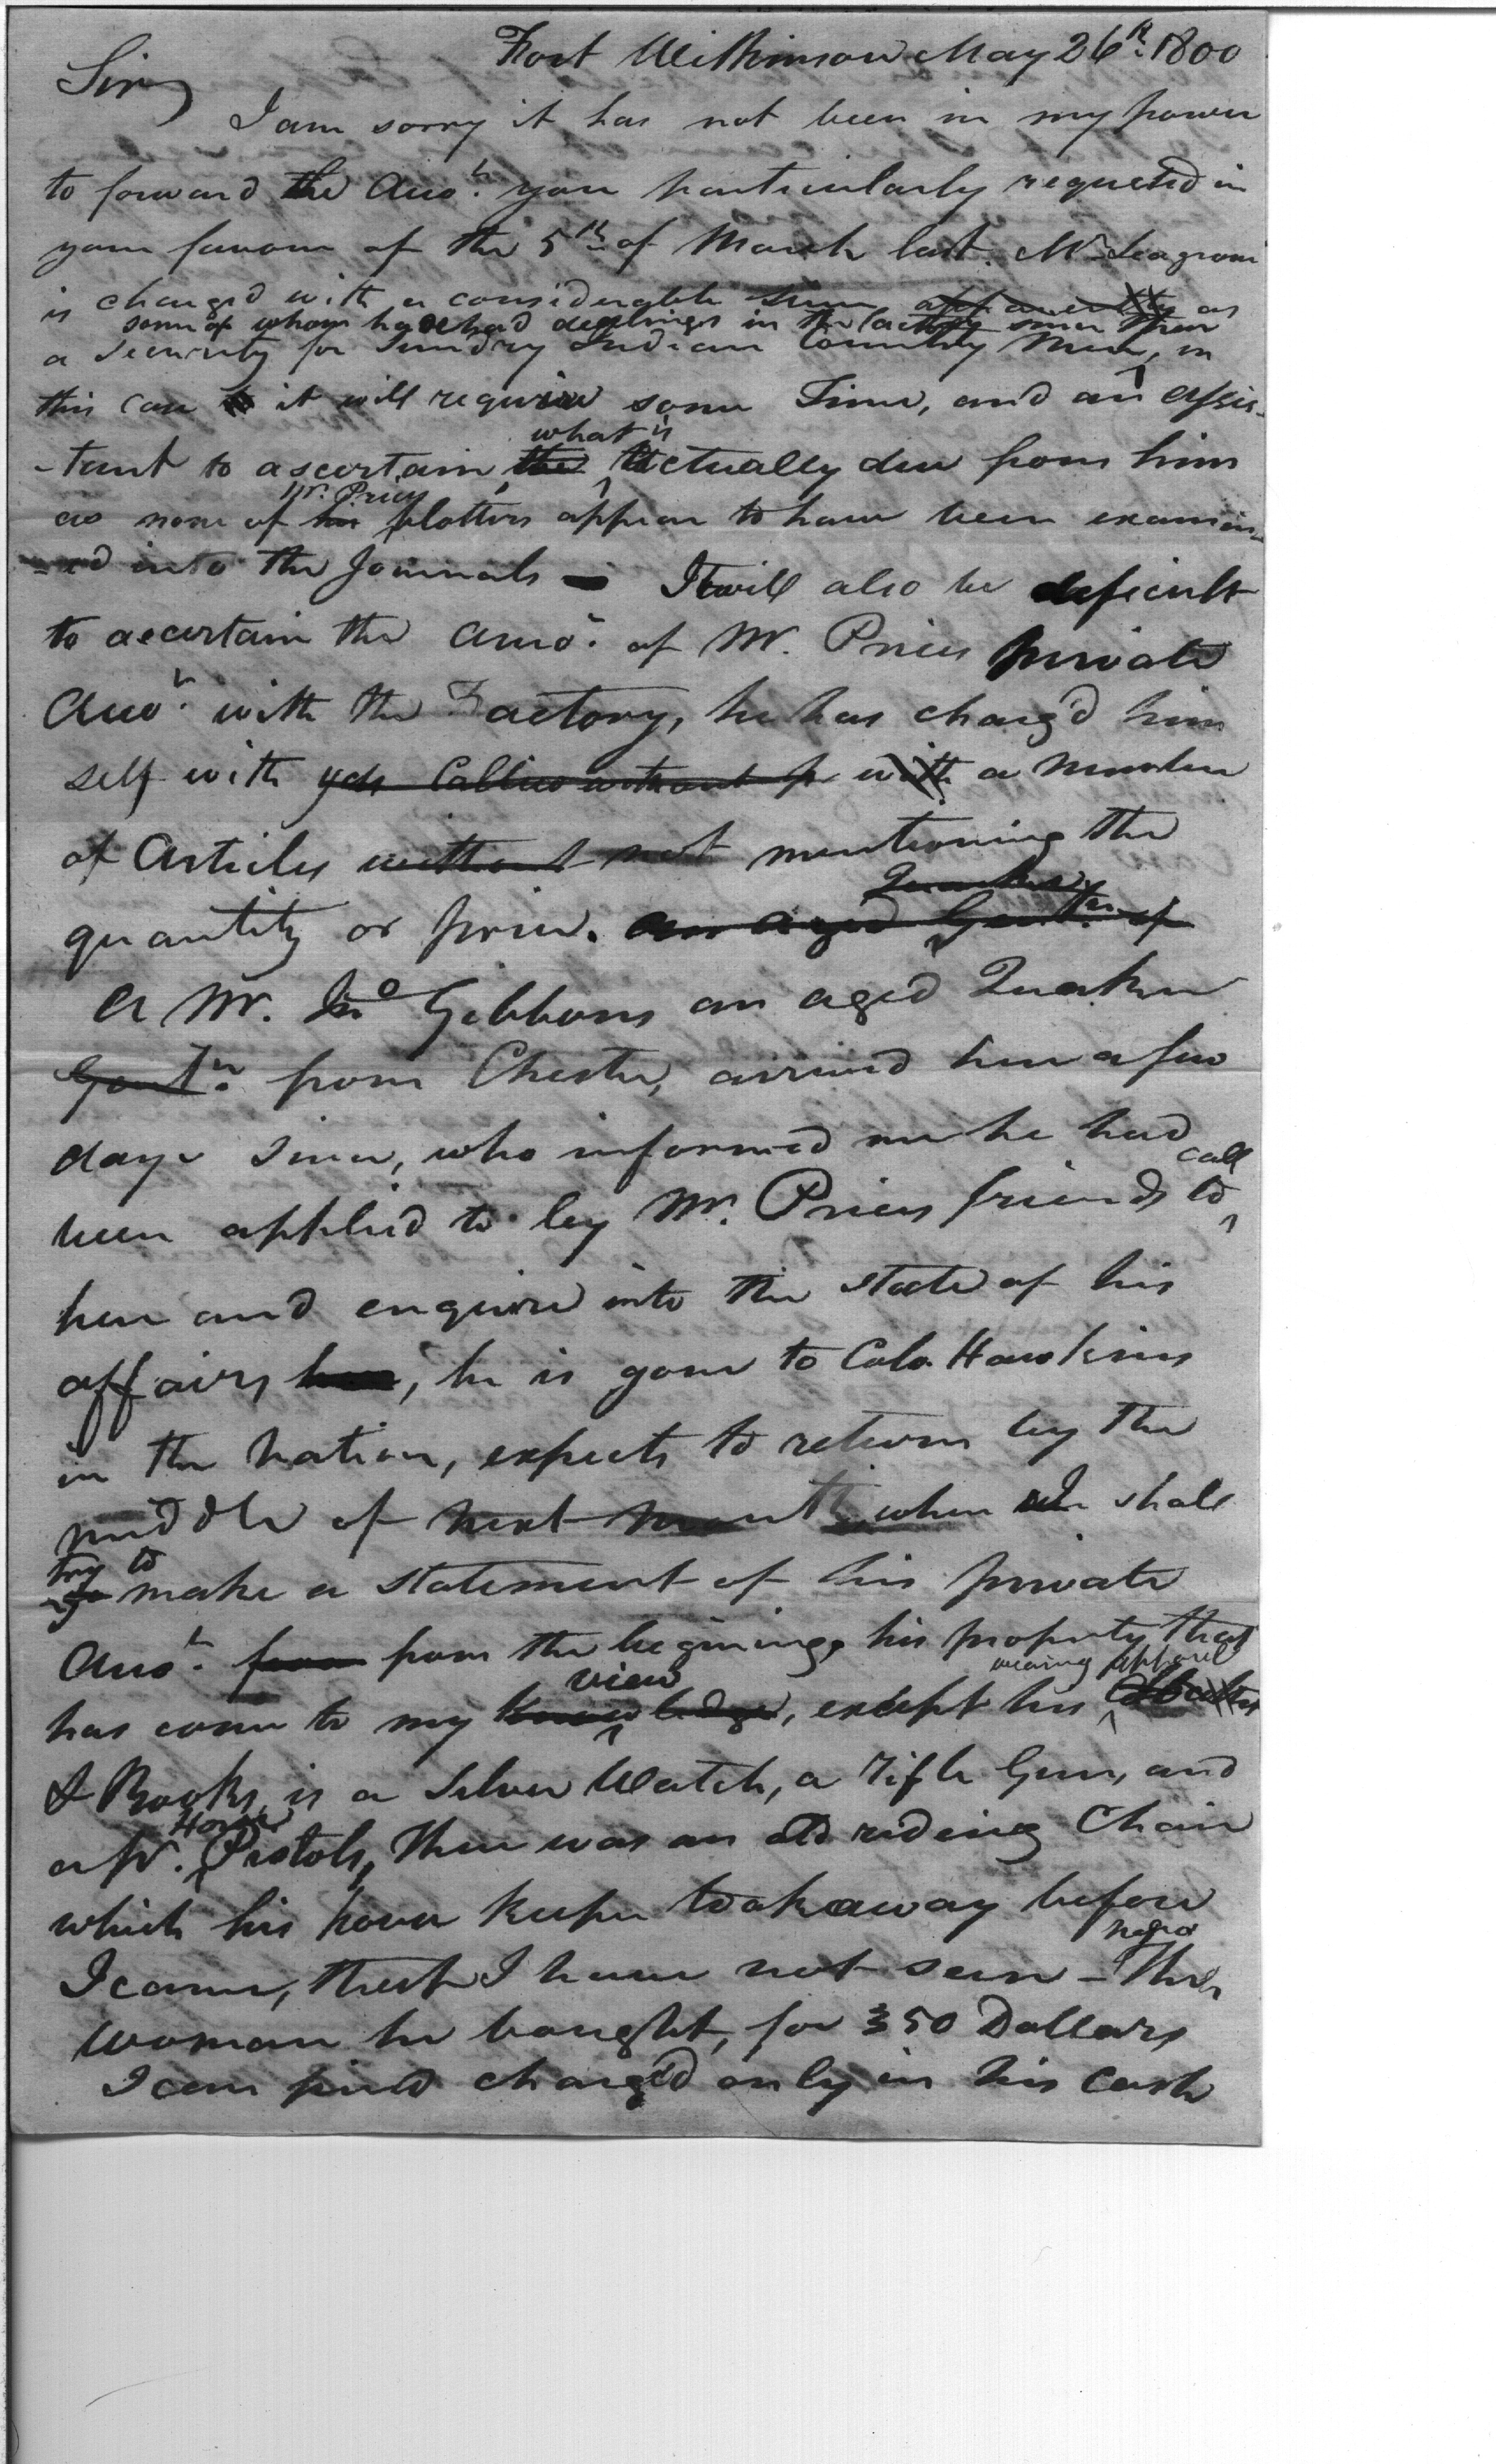 Fort Wilkinson May 26th. 1800
Sir,
I am sorry it has not been in my power
to forward the Acco.t you particularly requested in
your favour of the 5th of March last. Mr. Seagrove
is charged with a considerable sum, apparently as
some of whom have had dealings in the factory since then
a Security for Sundry Indian Country Men, in
this case it will require some Time, and an assis-
-tant to ascertain the what is actually due from him
as none of his Mr. Prices blotters appear to have been examin-
-ed into the Journals - It will also be deficult
to ascertain the amo.t of Mr. Prices private
Acco.t with the Factory, he has charg'd him
self with yds Callico without p with a number
of Articles without not mentioning the
quantity or price. an aged Quaker Gent.n of
A Mr. Jno Gibbons an aged Quaker
Gent.n from Chester, arrived here a few
days since, who informed me he had
been applied to by Mr. Prices friends to call
here and enquire into the state of his
affairs here, he is gone to Colo. Hawkins
in the Nation, expects to return by the
middle of next month, when we shall
try to make a statement of his private
Acco.t from from the begining, his property that
has come to my knowledge view, except his wearing apparel
& Books, is a Silver Watch, a rifle Gun, and
a pr. Horse Pistols, There was an old riding Chair
which his house keeper took away before
I came, that I have not seen - The negro
woman he bought, for 350 Dollars
I can find charged only in his Cash